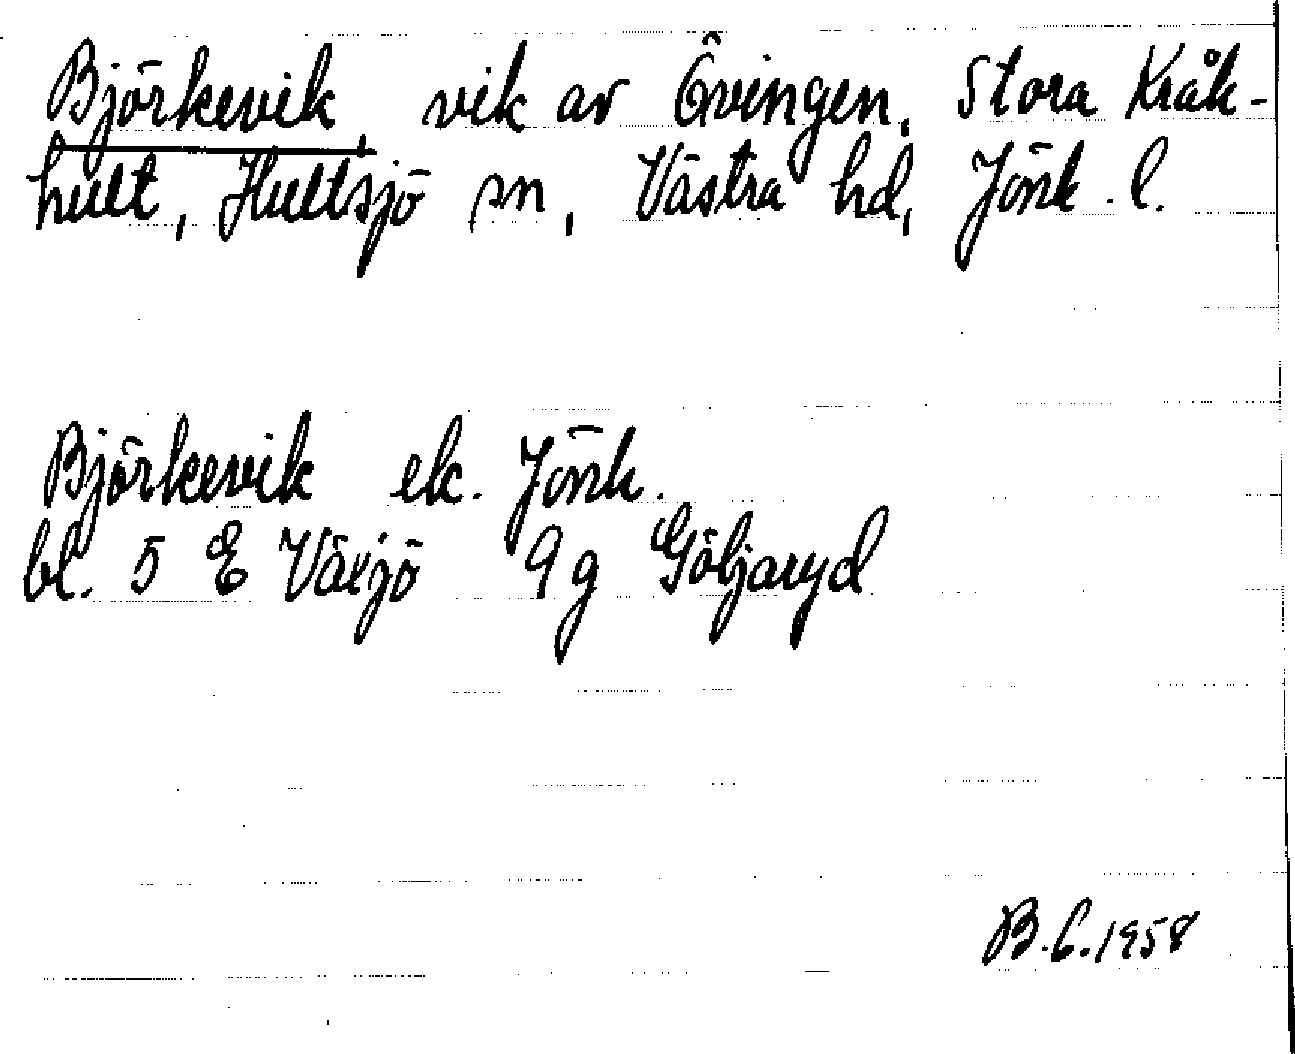 Björkevik, vik av Övingen, Stora Kråk-
hult, Hultsjö sn, Västra hd, Jönk. l.
Björkevik ek. Jönk.
bl. 5 E Växjö 9g Göljaryd
B.G. 1958